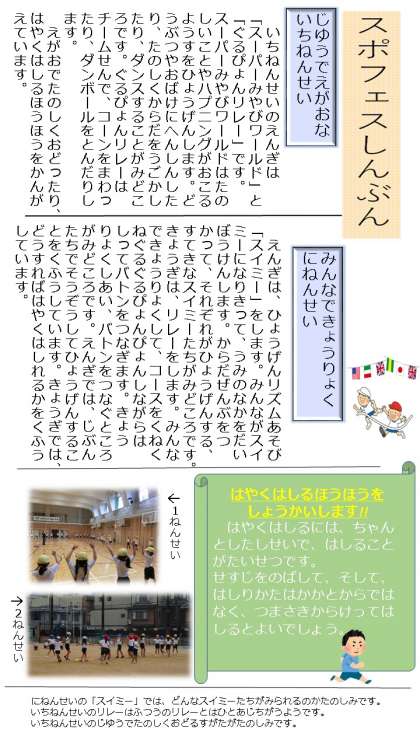 スポフェスしんぶん
じゆうでえがおな
いちねんせい
いちねんせいのえんぎは
「スーパーみやびワールド」と
「ぐるぴょんリレー」です。
スーパーみやびワールドはたの
しいことやハプニングがおこる
ようすをひょうげんします。ど
うぶつやおばけにへんしんした
り、たのしくからだをうごかし
たり、ダンスすることがみどこ
ろです。ぐるぴょんリレーは
チームせんで、コーンをまわっ
たり、ダンボールをとんだりし
ます。
えがおでたのしくおどったり、
はやくはしるほうほうをかんが
えています。
みんなできょうりょく
にねんせい
えんぎは、ひょうげんリズムあそび
「スイミー」をします。みんながスイ
ミーになりきって、うみのなかをだい
ぼうけんします。からだぜんぶをつ
かって、それぞれがひょうげんする、
すてきなスイミーたちがみどころです。
きょうぎは、リレーをします。みんな
できょうりょくして、コースをくねく
ねぐるぐるぴょんぴょんしながらは
しってバトンをつなぎます。きょう
りょくしあい、バトンをつなぐところ
がみどころです。えんぎでは、じぶん
たちでそうぞうしてひょうげんするこ
とをくふうしています。きょうぎでは、
どうすればはやくはしれるかをくふう
しています。
←1ねんせい
→2ねんせい
はやくはしるほうほうを
しょうかいします!!
はやくはしるには、ちゃん
としたしせいで、はしること
がたいせつです。
せすじをのばして、そして、
はしりかたはかかとからでは
なく、つまさきからけっては
しるとよいでしょう。
にねんせいの「スイミー」では、どんなスイミーたちがみられるのかたのしみです。
いちねんせいのリレーはふつうのリレーとはひとあじちがうようです。
いちねんせいのじゆうでたのしくおどるすがたがたのしみです。